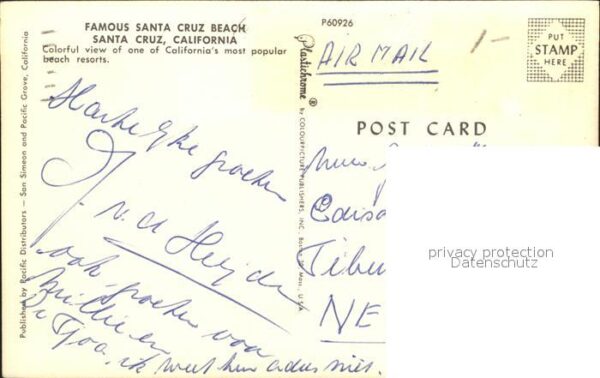 FAMOUS SANTA CRUZ BEACH
SANTA CRUZ, CALIFORNIA
Colorful view of one of California's most popular
beach resorts.
P60926
AIR MAIL
PUT
STAMP
HERE
POST CARD
Published by Pacific Distributors — San Simeon and Pacific Grove, California
Plastichrome ® by COLOURPICTURE PUBLISHERS, INC., Boston 30, Mass., U.S.A.
Hartelijke groeten
v. d. Heijden
ook groeten voor
Millie en
Toos, ik weet hun adres niet.
Ediso
Tilbu
NE
privacy protection
Datenschutz